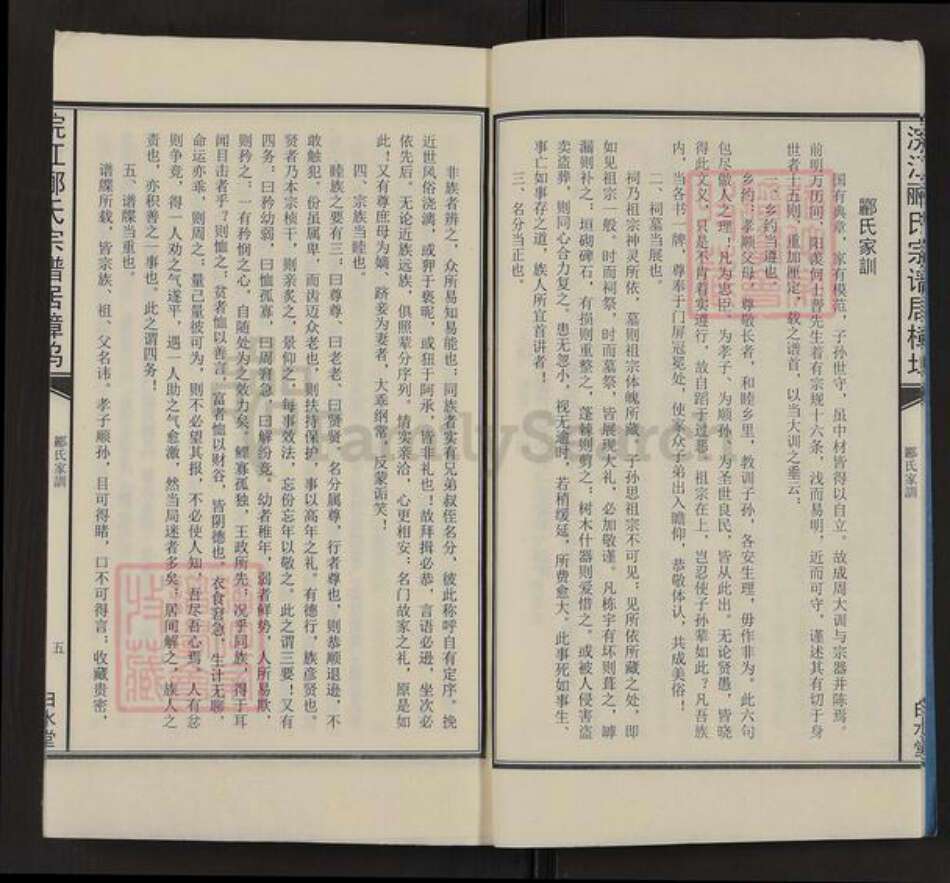 郦氏家训
国有典章，家有模范，子孙世守，虽中材皆得以自立。故成周大训与宗器并陈焉。
前明万历间，阳羡何士晋先生着有宗规十六条，浅而易明，近而可守，谨述其有切于身
世者十五则，重加厘定，载之谱首，以当大训之垂云：
一、乡约当遵也。
乡约：孝顺父母，尊敬长者，和睦乡里，教训子孙，各安生理，毋作非为。此六句
包尽做人之理！凡为忠臣、为孝子、为顺孙、为圣世良民，皆从此出。无论贤愚，皆晓
得此文义，只是不肯着实遵行，故自蹈于过恶。祖宗在上，岂忍使子孙辈如此？凡吾族
内，当各书一牌，尊奉于门屏冠冕处，使家众子弟出入瞻仰，恭敬体认，共成美俗！
二、祠墓当展也。
祠乃祖宗神灵所依，墓则祖宗体魄所藏。子孙思祖宗不可见；见所依所藏之处，即
如见祖宗一般。时而祠祭，时而墓祭，皆展现大礼，必加敬谨。凡栋宇有坏则葺之，罅
漏则补之；垣砌碑石，有损则重整之，蓬棘则剪之；树木什器则爱惜之。或被人侵害盗
卖盗葬，则同心合力复之。患无忽小，视无逾时，若稍缓延，所费愈大。此事死如事生、
事亡如事存之道，族人所宜首讲者！
三、名分当正也。
非族者辨之，众所易知易能也；同族者实有兄弟叔侄名分，彼此称呼自有定序。挽
近世风俗浇漓，或狎于亵昵，或狃于阿承，皆非礼也！故拜揖必恭，言语必逊，坐次必
依先后。无论近族远族，俱照辈分序列。情实亲洽，心更相安；名门故家之礼，原是如
此！又有尊庶母为嫡、跻妾为妻者，大乖纲常，反蒙诟笑！
四、宗族当睦也。
睦族之要有三：曰尊尊、曰老老、曰贤贤。名分属尊，行者尊也，则恭顺退逊，不
敢触犯。份虽属卑，而齿迈众老也，则扶持保护，事以高年之礼。有德行，族彦贤也。
贤者乃本宗桢干，则亲炙之，景仰之，每事效法，忘份忘年以敬之。此之谓三要！又有
四务：曰矜幼弱，曰恤孤寡，曰周窘急，曰解纷竞。幼者稚年，弱者鲜势，人所易欺，
则矜之；一有矜悯之心，自随处为之效力矣。鳏寡孤独，王政所先；况乎同族，得于耳
闻目击者乎？则恤之；贫者恤以善言，富者恤以财谷，皆阴德也。衣食窘急，生计无聊，
命运亦乖，则周之；量己量彼可为，则不必望其报，不必使人知，吾尽吾心焉。人有忿
则争竞，得一人劝之气遂平，遇一人助之气愈激，然当局迷者多矣；居间解之，族人之
责也，亦积善之一事也。此之谓四务！
五、谱牒当重也。
谱牒所载，皆宗族、祖、父名讳。孝子顺孙，目可得睹，口不可得言；收藏贵密，
郦氏家训
五
白水堂
郦氏家训